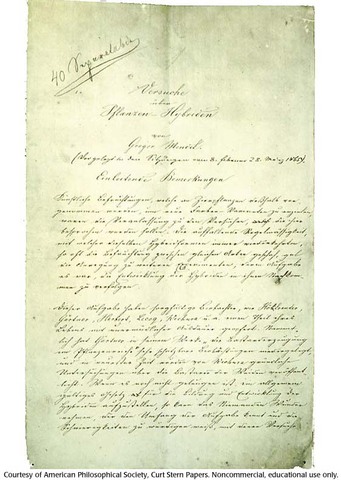 40 Separatabdr
Versuche
über
Pflanzen-Hybriden
von
Gregor Mendel.
(Vorgelegt in den Sitzungen vom 8. Februar 8. März 1865).
Einleitende Bemerkungen
Künstliche Befruchtungen, welche an Zierpflanzen deshalb vor-
genommen wurden, um neue Farben-Varianten zu erzielen,
waren die Veranlassung zu den Versuchen, die hier
besprochen werden sollen. Die auffallende Regelmässigkeit,
mit welcher dieselben Hybridformen immer wiederkehrten,
so oft die Befruchtung zwischen gleichen Arten geschah, gab
die Anregung zu weiteren Experimenten, deren Aufgabe
es war, die Entwicklung der Hybriden in ihren Nachkom-
men zu verfolgen.
Dieser Aufgabe haben sorgfältige Beobachter, wie Kölreuter,
Gärtner, Herbert, Lecoq, Wichura u. a. einen Theil ihres
Lebens mit unermüdlicher Ausdauer geopfert. Nament-
lich hat Gärtner in seinem Werke „die Bastarderzeugung
im Pflanzenreiche" sehr schätzbare Beobachtungen niedergelegt,
und in neuester Zeit wurden von Wichura gründliche
Untersuchungen über die Bastarde der Weiden veröffent-
licht. Wenn es noch nicht gelungen ist, ein allgemein
giltiges Gesetz für die Bildung und Entwicklung der
Hybriden aufzustellen, so kann das Niemanden Wunder
nehmen, der den Umfang der Aufgabe kennt und die
Schwierigkeiten zu würdigen weiß, mit denen Versuche
Courtesy of American Philosophical Society, Curt Stern Papers. Noncommercial, educational use only.